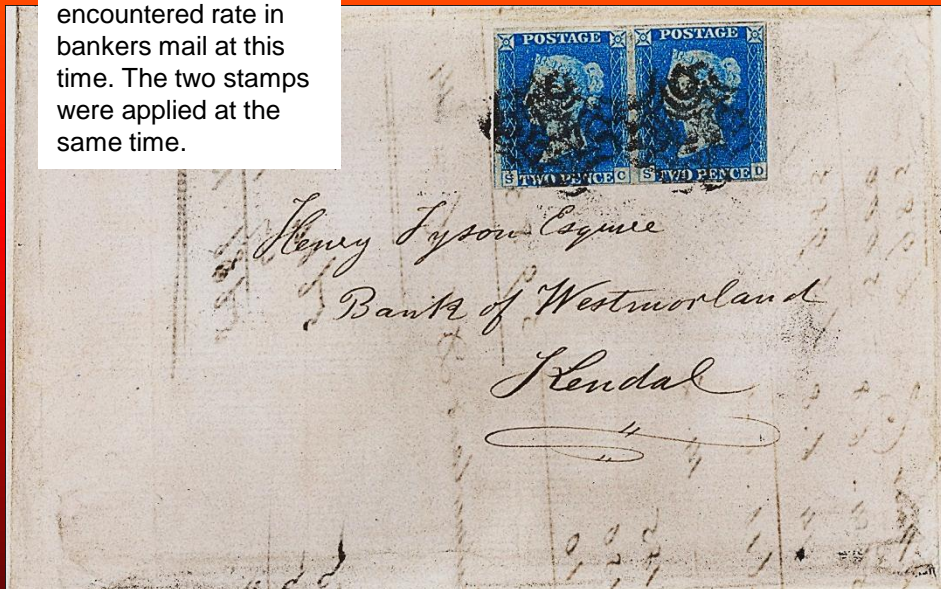 encountered rate in
bankers mail at this
time. The two stamps
were applied at the
same time.
POSTAGE POSTAGE
S TWO PENCE C S TWO PENCE D
Henry Tyson Esquire
Bank of Westmorland
Kendal